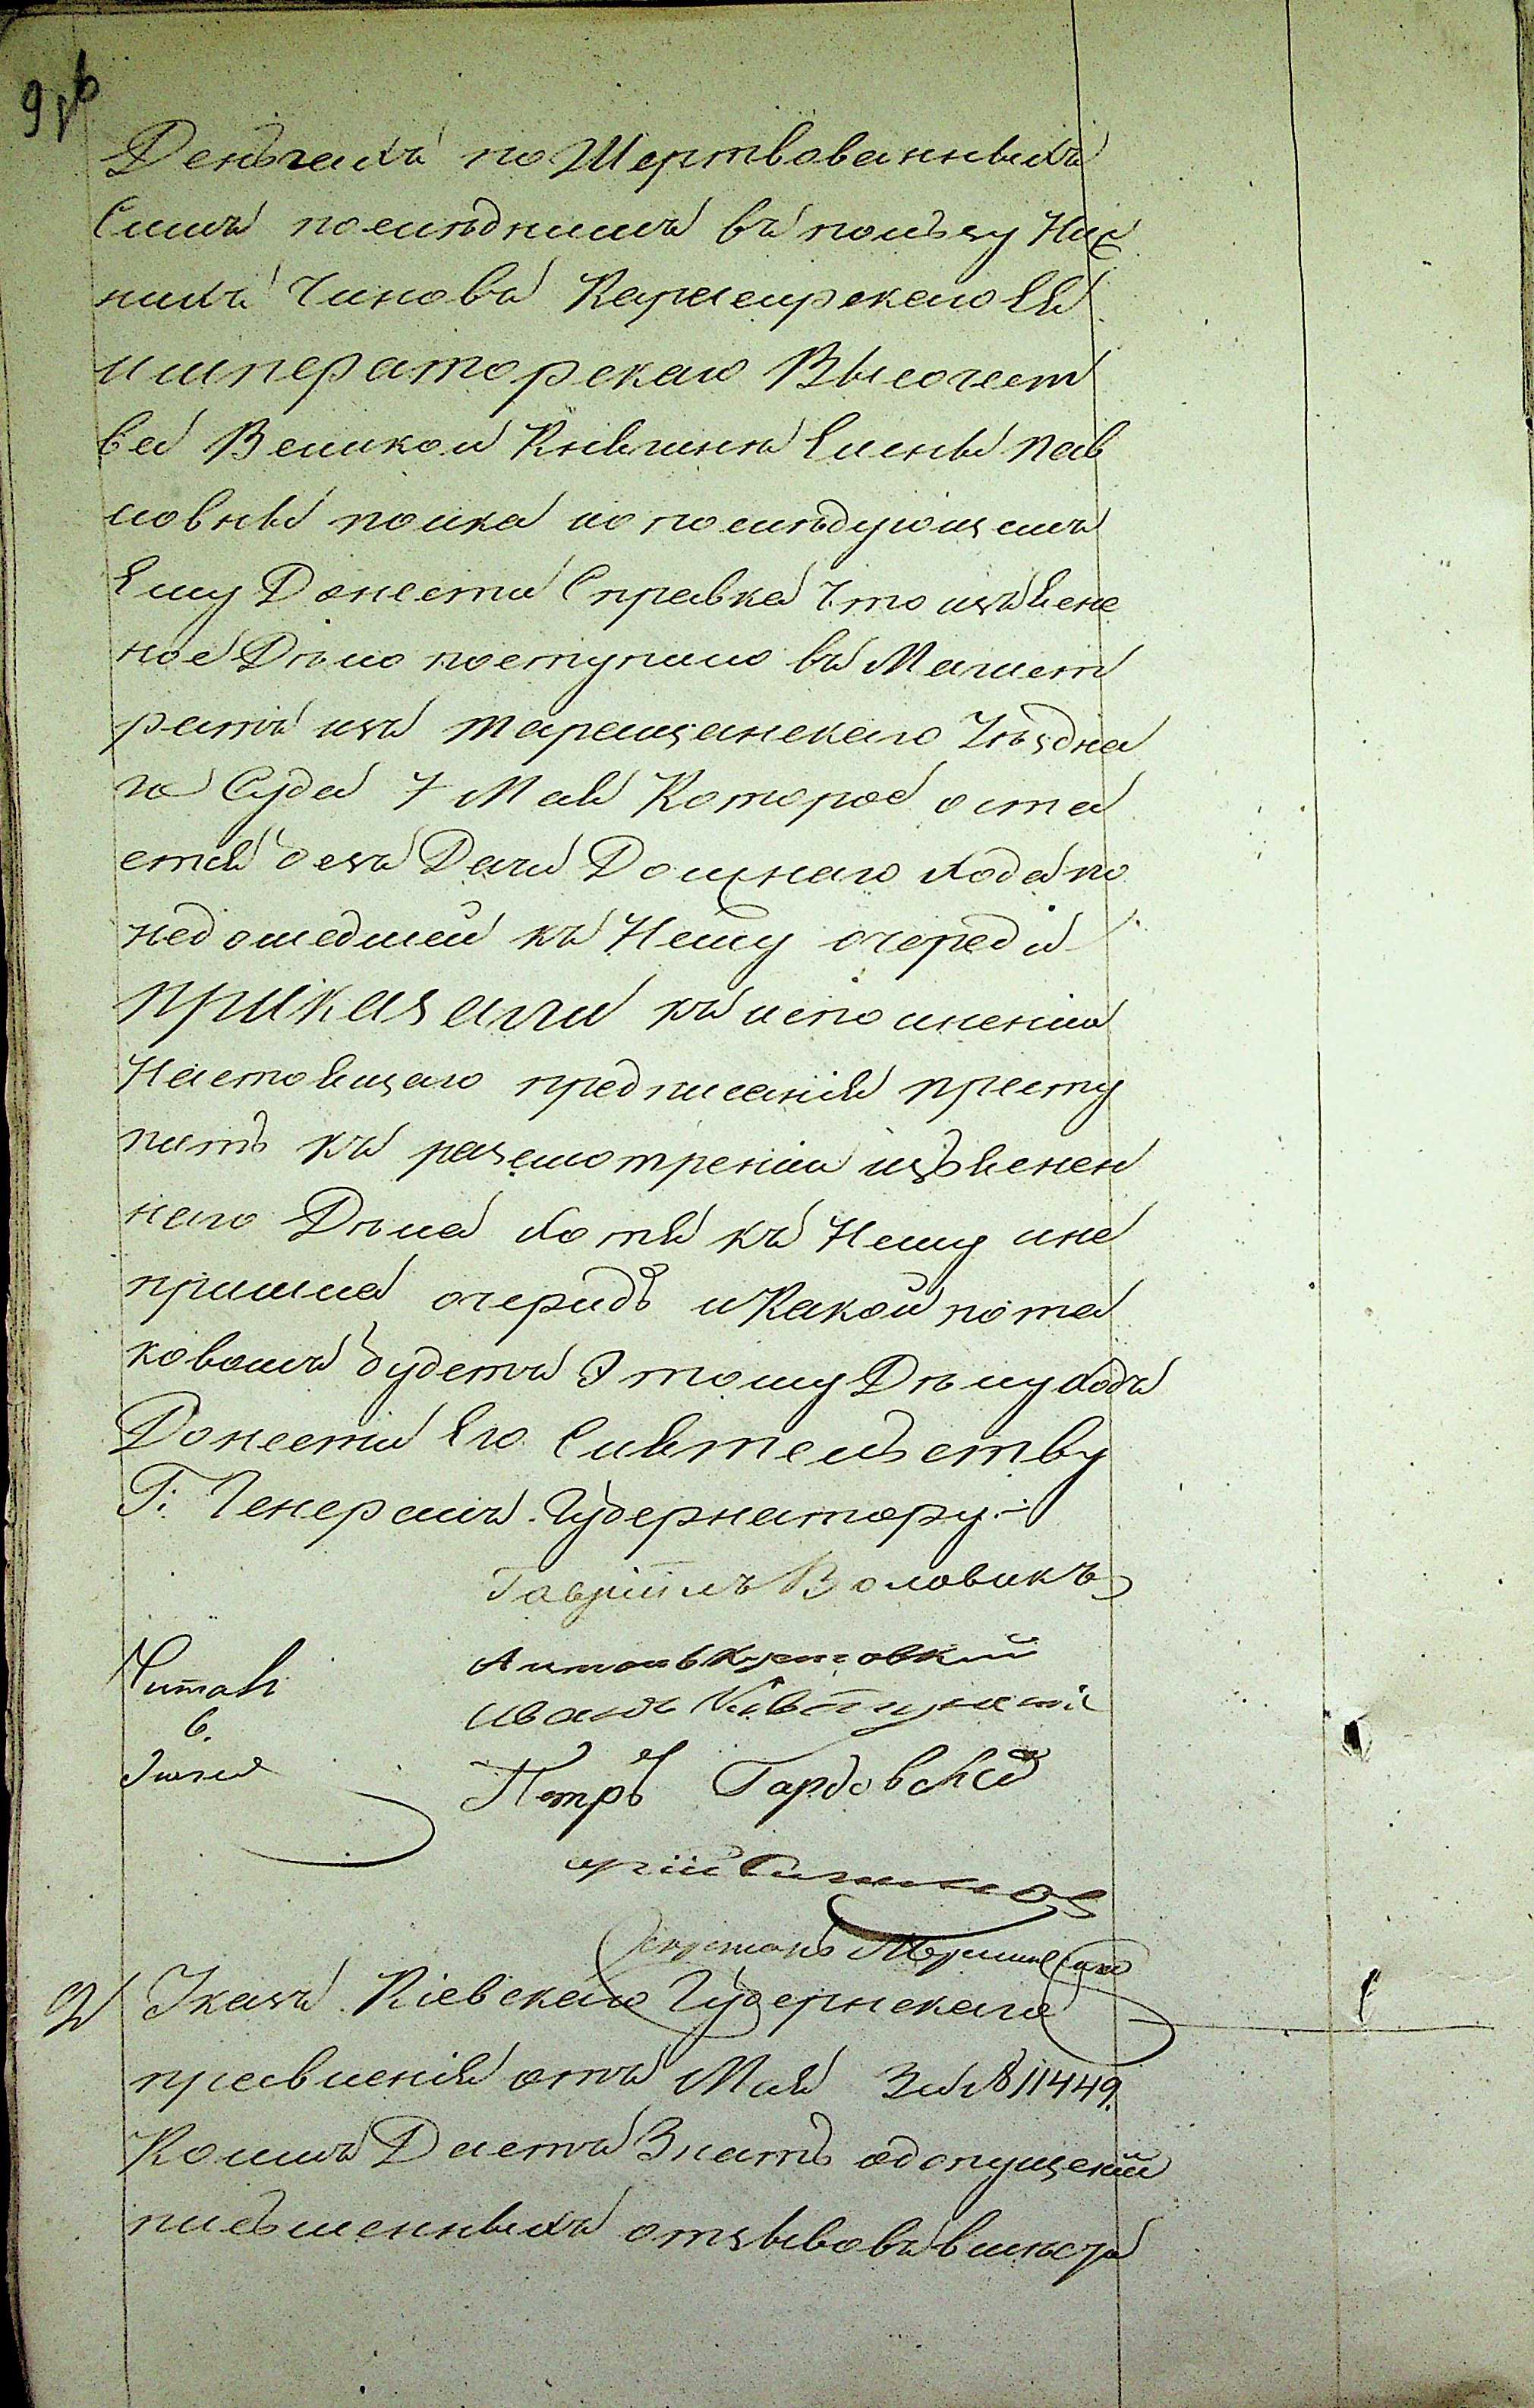 Деньгахъ по Шертвованныхъ
Симъ последнимъ въ пользу Ниж
нихъ Чиновъ Кирасирскаго Ея
императорскаго Высочест
ва Великой Княгини Елены Пав
ловны полка и по послѣдующему
Ему Донести Справка Что изъясне
ное Дѣло поступило въ Магист
ратъ изъ таращанскаго Уѣздна
го Суда 7 Мая Которое оста
ется безъ Дачи Должнаго хода по
недошедшей къ Нему очереди
приказали къ исполненію
Настоящаго предписанія присту
пить къ разсмотренію изъяснен
наго Дѣла хотя къ Нему и не
пришла очеридь и Какой по та
ковомъ будетъ Этому Дѣлу ходъ
Донести Его Сиятельству
Г: Генералъ Губернатору.-
Гавріилъ Воловикъ
Читалъ
6.
Іюня
Иванъ
Петръ Гарбовскій
Секретарь
2/ Указъ Кіевскаго Губернскаго
правленія отъ Мая За № 11449.
Коимъ Даетъ Знать одопущеніи
письменныхъ отзывовъ вместо